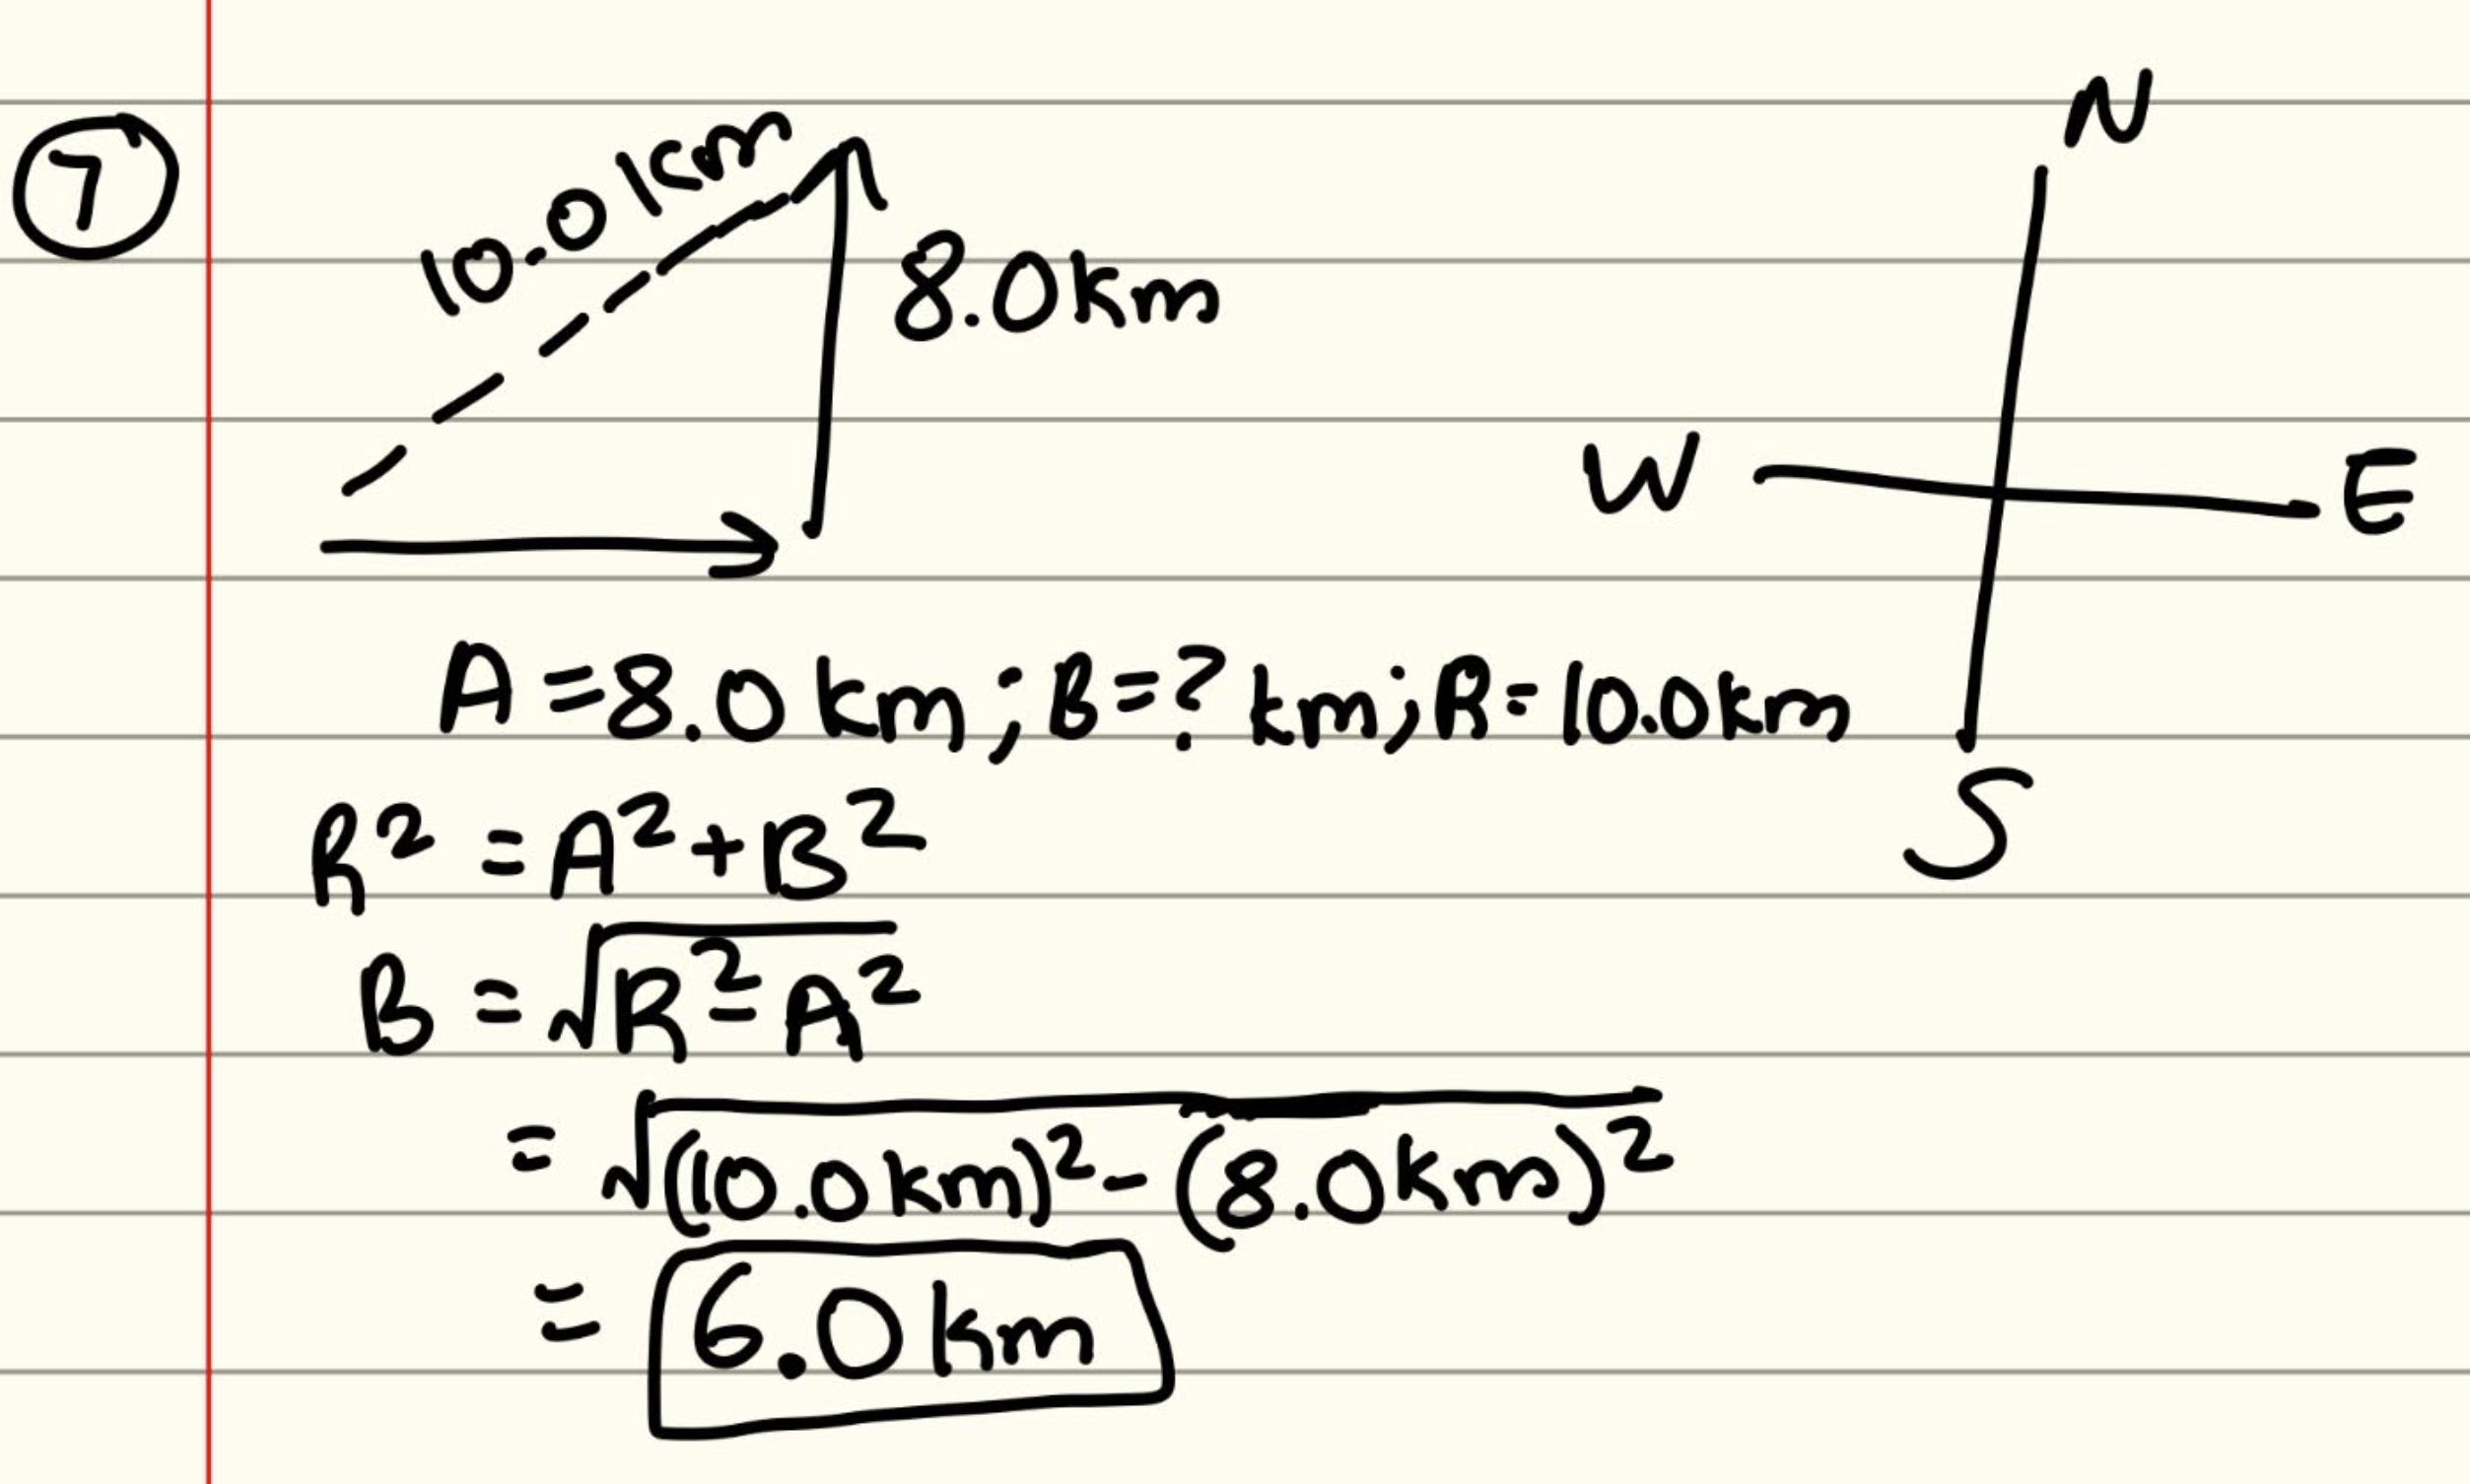 7
10.0 km
8.0 km
N
W
E
S
A = 8.0 km ; B = ? km ; R = 10.0 km
R² = A² + B²
B = √R² - A²
= √(10.0 km)² - (8.0 km)²
= 6.0 km